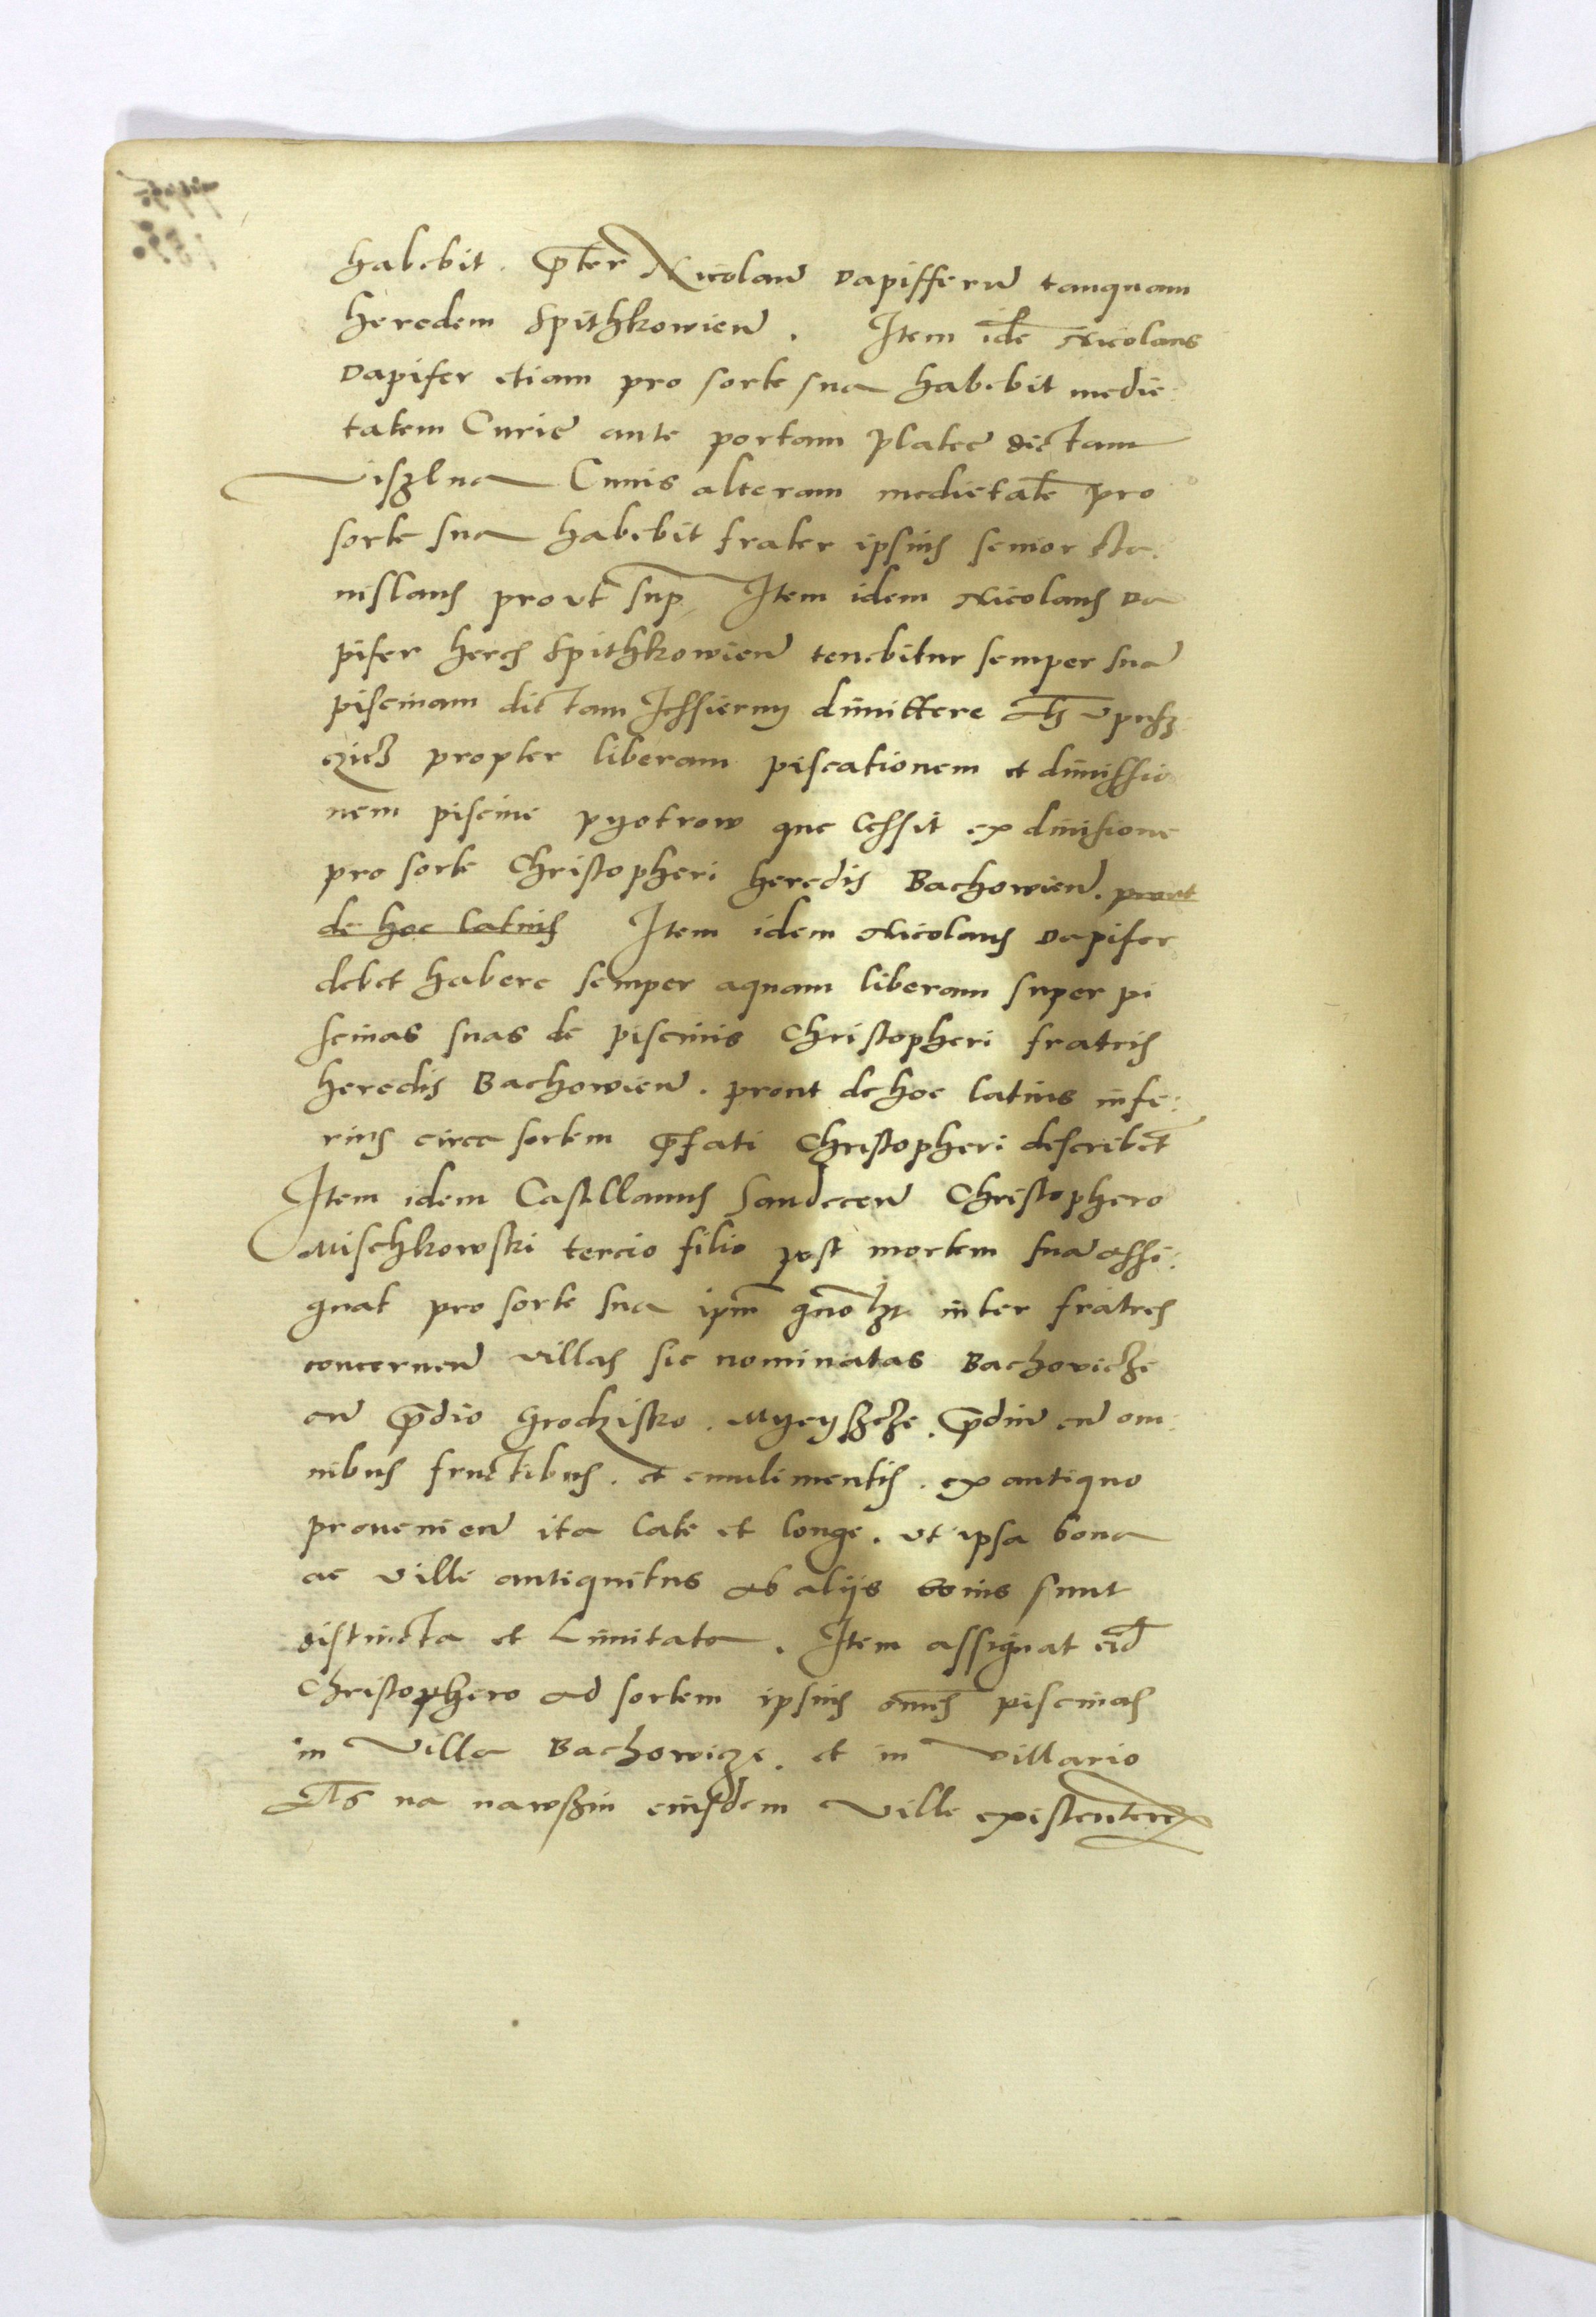 habebit. p̄ter Nicolaū dapifferū tanquam
heredem Spithkowieñ. Item idē Nicolaus
dapifer etiam pro sorte sua habebit medie:
tatem Curie ante portam platee dictam
Viszlna Cuius alteram medietatē pro
sorte sua habebit frater ipsius senior Sta:
nislaus prout sup̄ Item idem Nicolaus da
pifer heres Spithkowieñ tenebitur semper suā
piscinam dictam Jessierny dimittere als vpusz
cziez propter liberam piscationem et dimissio
nem piscine pyotrow que cessit ex diuisione
pro sorte Christopheri heredis Bachowieñ. prout
de hoc latius Item idem Nicolaus dapifer
debet habere semper aquam liberam super pi
scinas suas de piscinis Christopheri fratris
heredis Bachowieñ. prout de hoc latius infe:
rius circa sortem p̄fati Christopheri describet̄
Item idem Castellanus Sandeceñ Christophero
Mischkowski tercio filio post mortem suā assi:
gnat pro sorte sua ip̄m inter fratres
concerneñ villas sic nominatas Bachovicze
cū p̄dio Grodzisko. Myeyszcze. p̄diū cū om:
nibus fructibus. et emulimentis. ex antiquo
prouenieñ ita late et longe. vt ipsa bona
ac ville antiquitus ab alijs bonis sunt
distincta et Limitata. Item assignat eid̄
Christophero ad sortem ipsius om̄es piscinas
in Villa Bachowicze. et in villario
als na nawsziu eiusdem Ville existentem